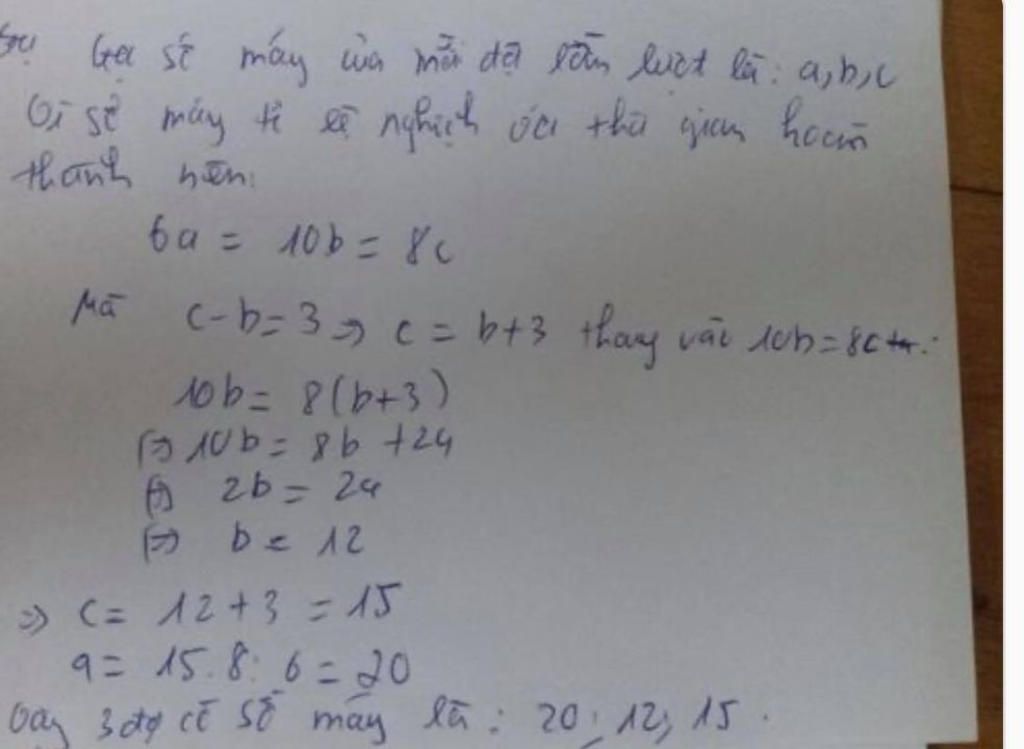 Gọi số máy của mỗi đội lần lượt là: a, b, c
Vì số máy tỉ lệ nghịch với thời gian hoàn
thành nên:
6a = 10b = 8c
Mà c - b = 3 => c = b + 3 thay vào 10b = 8c
10b = 8(b+3)
<=> 10b = 8b + 24
<=> 2b = 24
<=> b = 12
=> c = 12 + 3 = 15
a = 15.8:6 = 20
Vậy 3 đội có số máy là: 20; 12; 15.